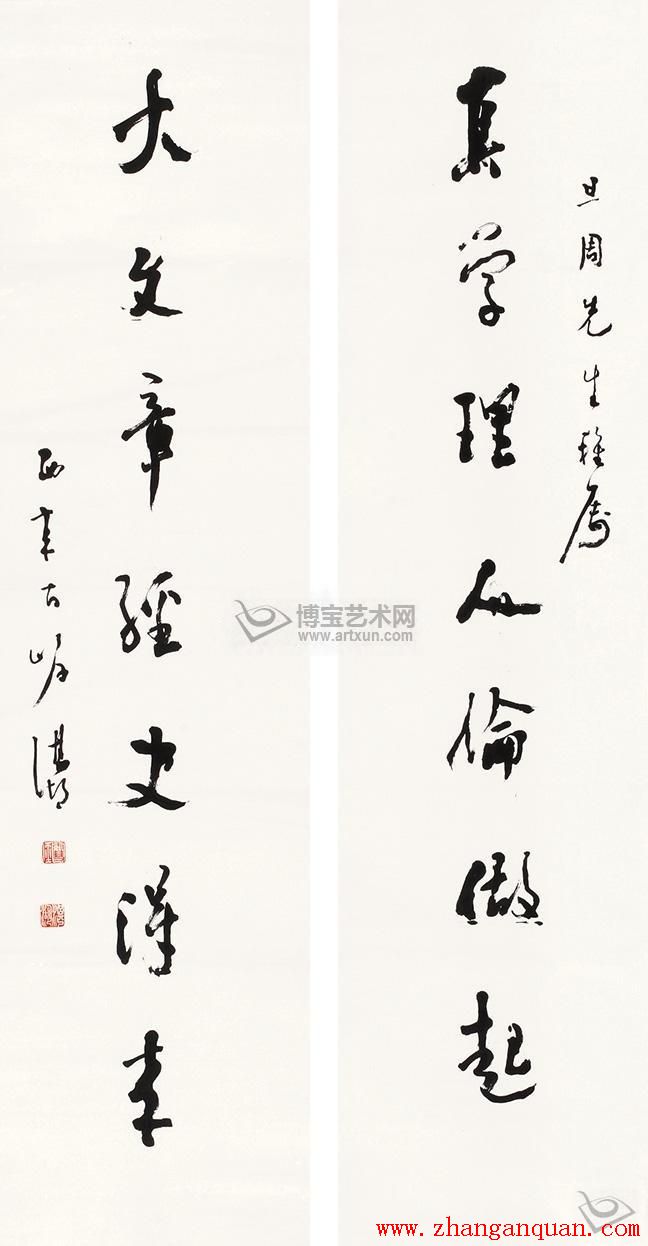 旦周先生雅属
真学理人倫做起
大文章經史得来
博宝艺术网
www.artxun.com
www.zhanganquan.com